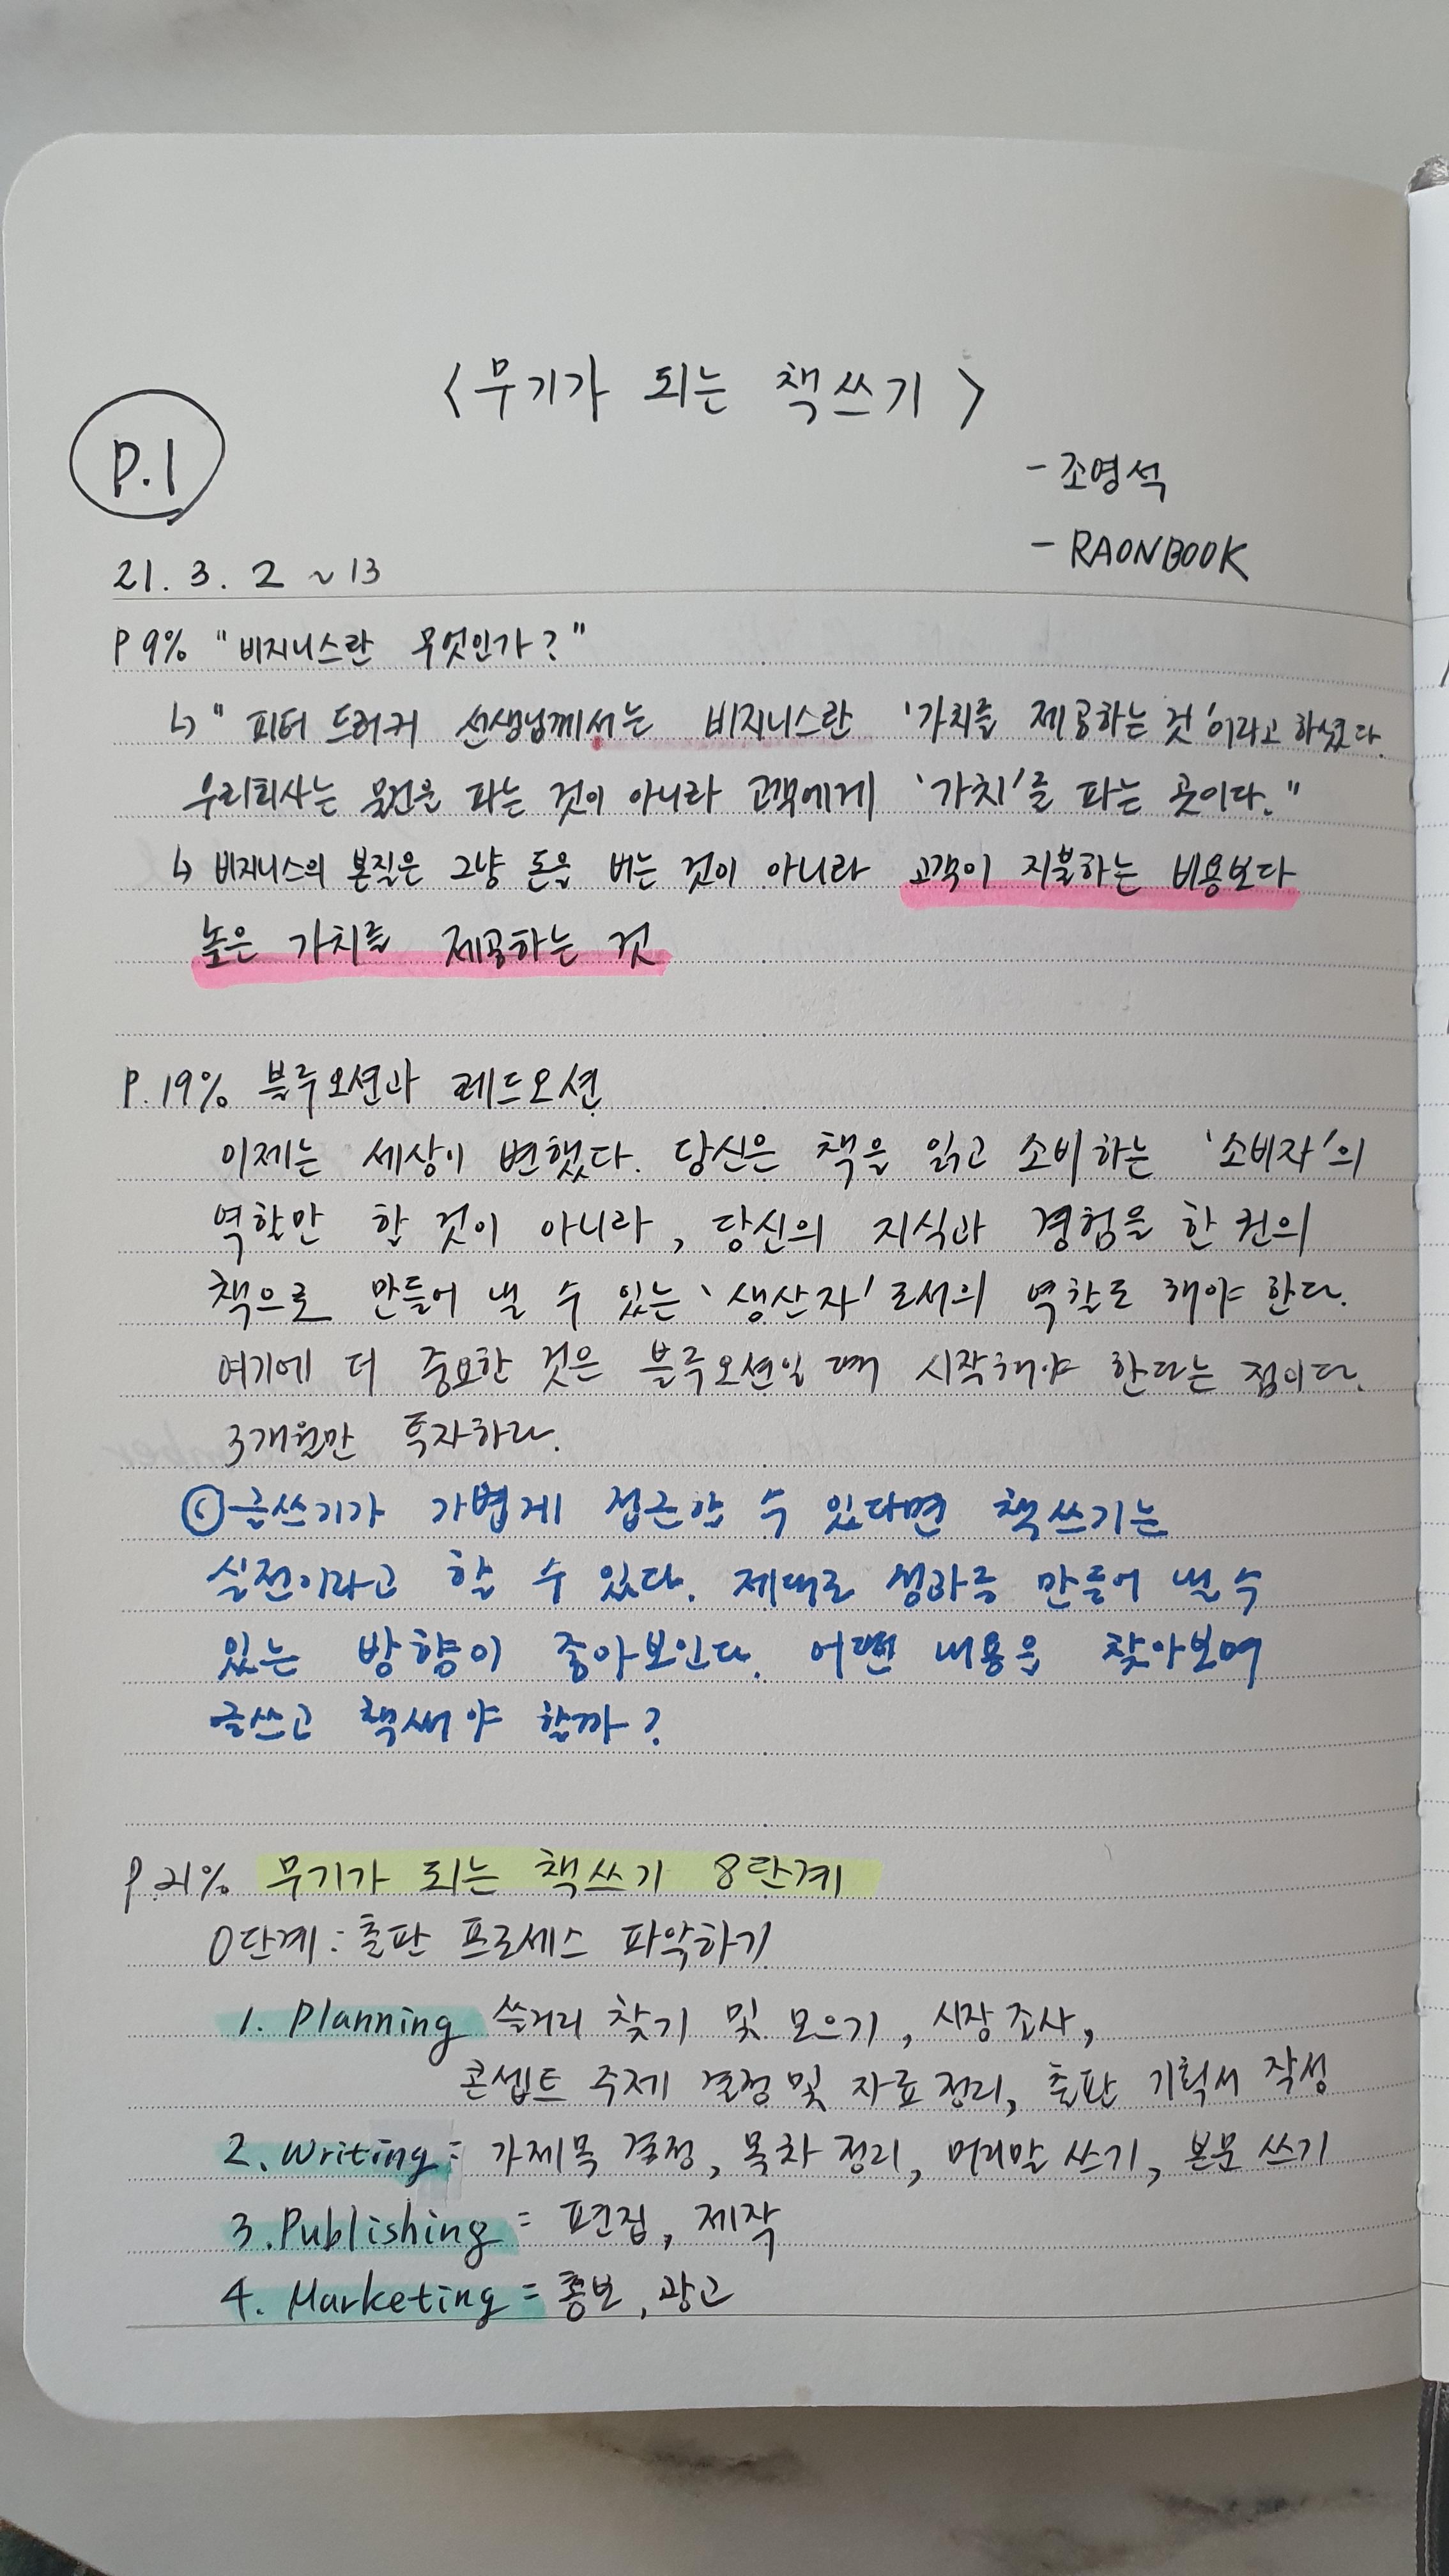 <무기가 되는 책쓰기>
P.1
- 조영석
- RAONBOOK
21. 3. 2 ~ 13
P 9% "비지니스란 무엇인가?"
↳ " 피터 드러커 선생님께서는 비지니스란 '가치를 제공하는 것'이라고 하셨다.
우리회사는 물건을 파는 것이 아니라 고객에게 '가치'를 파는 곳이다."
↳ 비지니스의 본질은 그냥 돈을 버는 것이 아니라 고객이 지불하는 비용보다
높은 가치를 제공하는 것
P. 19% 블루오션과 레드오션
이제는 세상이 변했다. 당신은 책을 읽고 소비하는 '소비자'의
역할만 할 것이 아니라, 당신의 지식과 경험을 한 권의
책으로 만들어 낼 수 있는 '생산자'로서의 역할도 해야 한다.
여기에 더 중요한 것은 블루오션일 때 시작해야 한다는 점이다.
3개월만 투자하라.
ⓒ 글쓰기가 가볍게 접근할 수 있다면 책쓰기는
실전이라고 할 수 있다. 제대로 성과를 만들어 낼 수
있는 방향이 좋아보인다. 어떤 내용을 찾아보며
글쓰고 책써야 할까?
P. 21% 무기가 되는 책쓰기 8단계
0단계: 출판 프로세스 파악하기
1. Planning 쓸거리 찾기 및 모으기, 시장 조사,
콘셉트 주제 결정 및 자료 정리, 출판 기획서 작성
2. Writing = 가제목 결정, 목차 정리, 머리말 쓰기, 본문 쓰기
3. Publishing = 편집, 제작
4. Marketing = 홍보, 광고